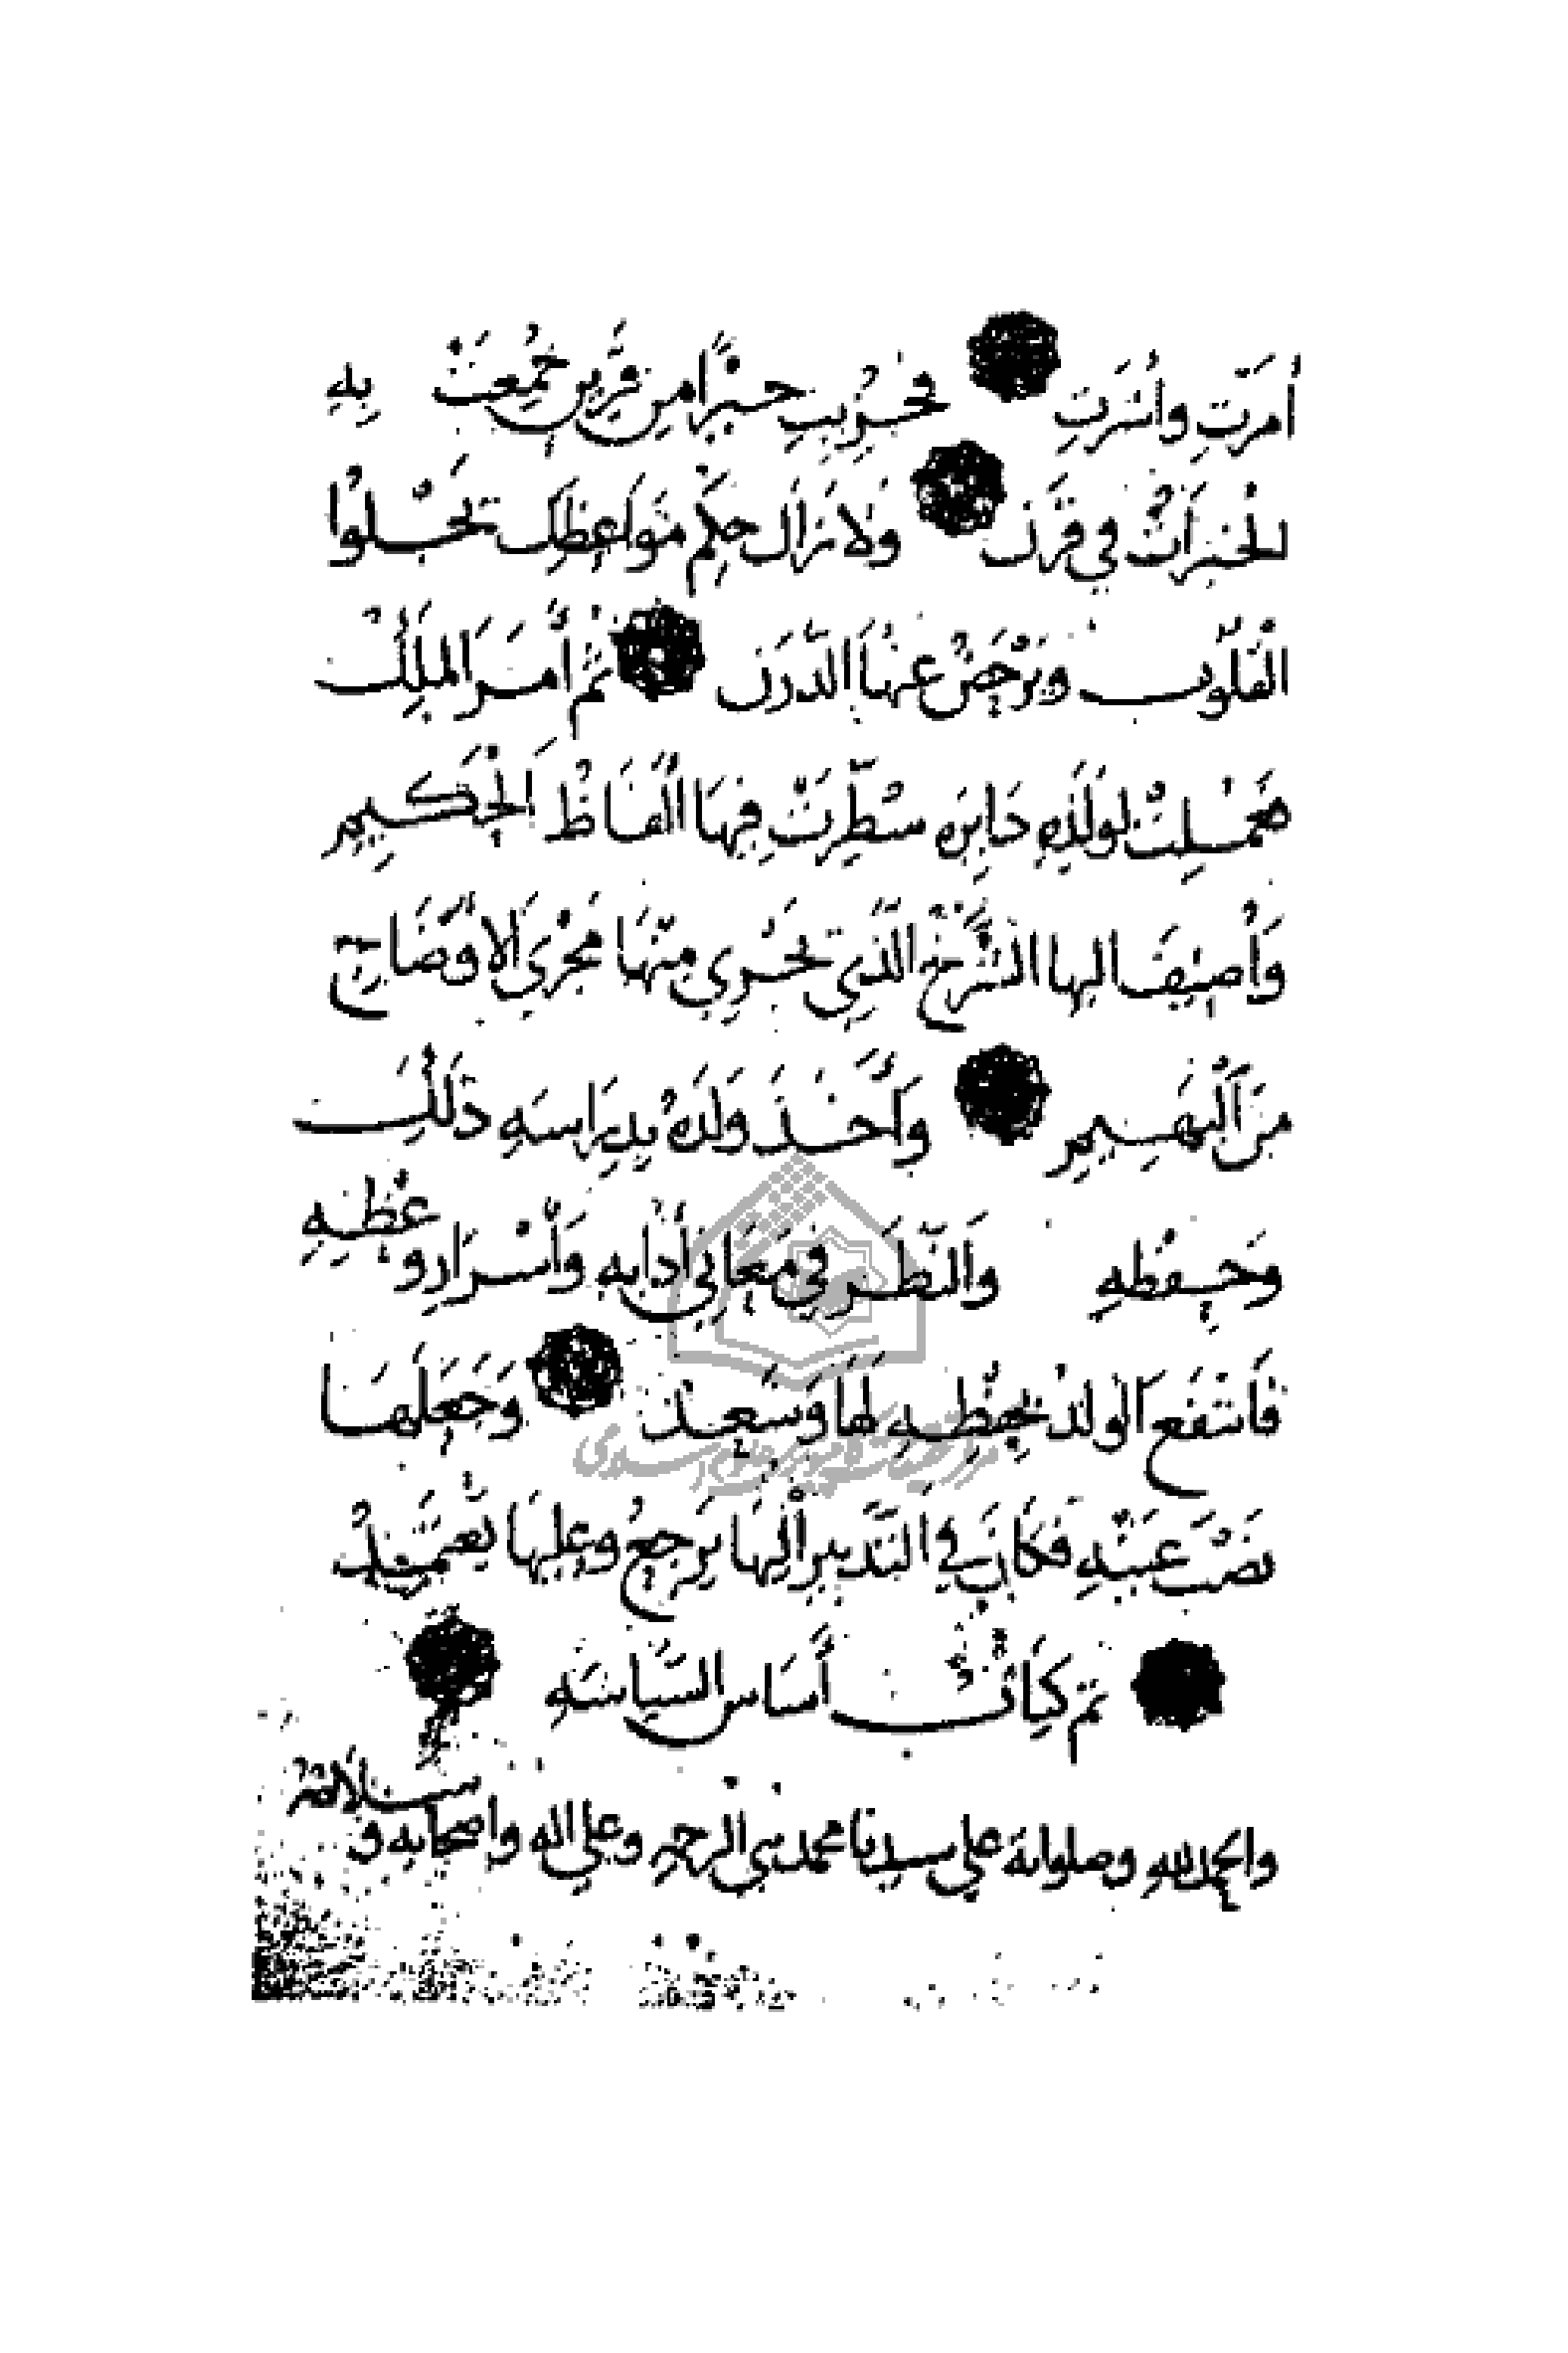 أمرت وأشرت فجزيت خيرا من قرين جمعت به
الخيرات في قرن ولا تزال حكم مواعظك تجلوا
القلوب وترحض عنها الدرن ثم أمر الملك
فعملت لولده دايره سطرت فيها ألفاظ الحكيم
وأضيف اليها الشرح الذي تجري منها مجرى الأوضاح
من البهيم وأخذ ولده بدراسه ذلك
وحفظه والنظر في معاني أدابه وأسرار وعظه
فانتفع الولد بحفظه لها وسعد وجعلها
نصب عينه فكان في التدبير إليها يرجع وعليها يعتمد
تم كتاب أساس السياسه
والحمد لله وصلواته على سيدنا محمد نبي الرحمه وعلى اله واصحابه و سلامه
مركز تحقيقات كامپيوترى علوم اسلامى